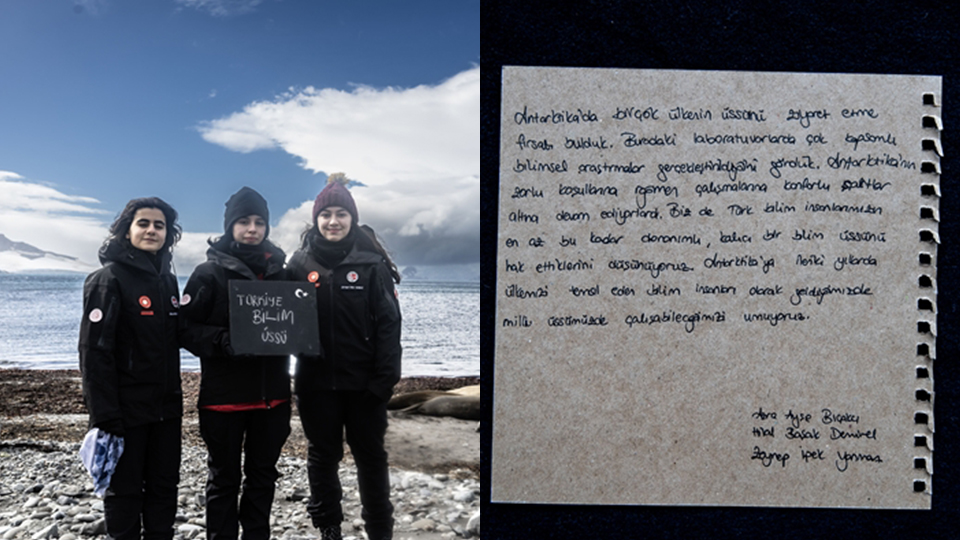 TÜRKİYE
BİLİM
ÜSSÜ
Antarktika'da birçok ülkenin üssünü ziyaret etme
fırsatı bulduk. Buradaki laboratuvarlarda çok kapsamlı
bilimsel araştırmalar gerçekleştirildiğini gördük. Antarktika'nın
zorlu koşullarına rağmen çalışmalarına konforlu şartlar
altına devam ediyorlardı. Biz de Türk bilim insanlarımızın
en az bu kadar donanımlı, kalıcı bir bilim üssünü
hak ettiklerini düşünüyoruz. Antarktika'ya ileriki yıllarda
ülkemizi temsil eden bilim insanları olarak geldiğimizde
milli üssümüzde çalışabileceğimizi umuyoruz.
Azra Ayşe Bıçakçı
Hilal Başak Demirel
Zeynep İpek Yanmaz